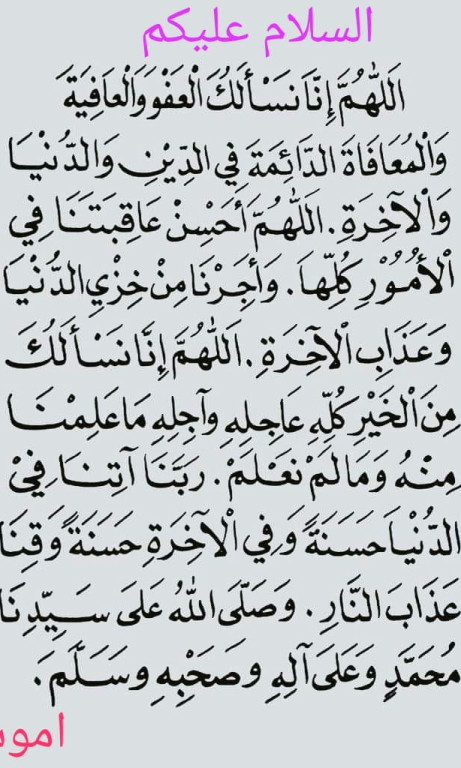 السلام عليكم
اَللّٰهُمَّ إِنَّا نَسْأَلُكَ الْعَفْوَ وَالْعَافِيَةَ
وَالْمُعَافَاةَ الدَّائِمَةَ فِي الدِّيْنِ وَالدُّنْيَا
وَالْآخِرَةِ. اَللّٰهُمَّ أَحْسِنْ عَاقِبَتَنَا فِي
الْأُمُوْرِ كُلِّهَا. وَأَجِرْنَا مِنْ خِزْيِ الدُّنْيَا
وَعَذَابِ الْآخِرَةِ. اَللّٰهُمَّ إِنَّا نَسْأَلُكَ
مِنَ الْخَيْرِ كُلِّهِ عَاجِلِهِ وَآجِلِهِ مَا عَلِمْنَا
مِنْهُ وَمَا لَمْ نَعْلَمْ. رَبَّنَا آتِنَا فِيْ
الدُّنْيَا حَسَنَةً وَفِي الْآخِرَةِ حَسَنَةً وَقِنَا
عَذَابَ النَّارِ. وَصَلَّى اللهُ عَلَى سَيِّدِنَا
مُحَمَّدٍ وَعَلَى آلِهِ وَصَحْبِهِ وَسَلَّمَ.